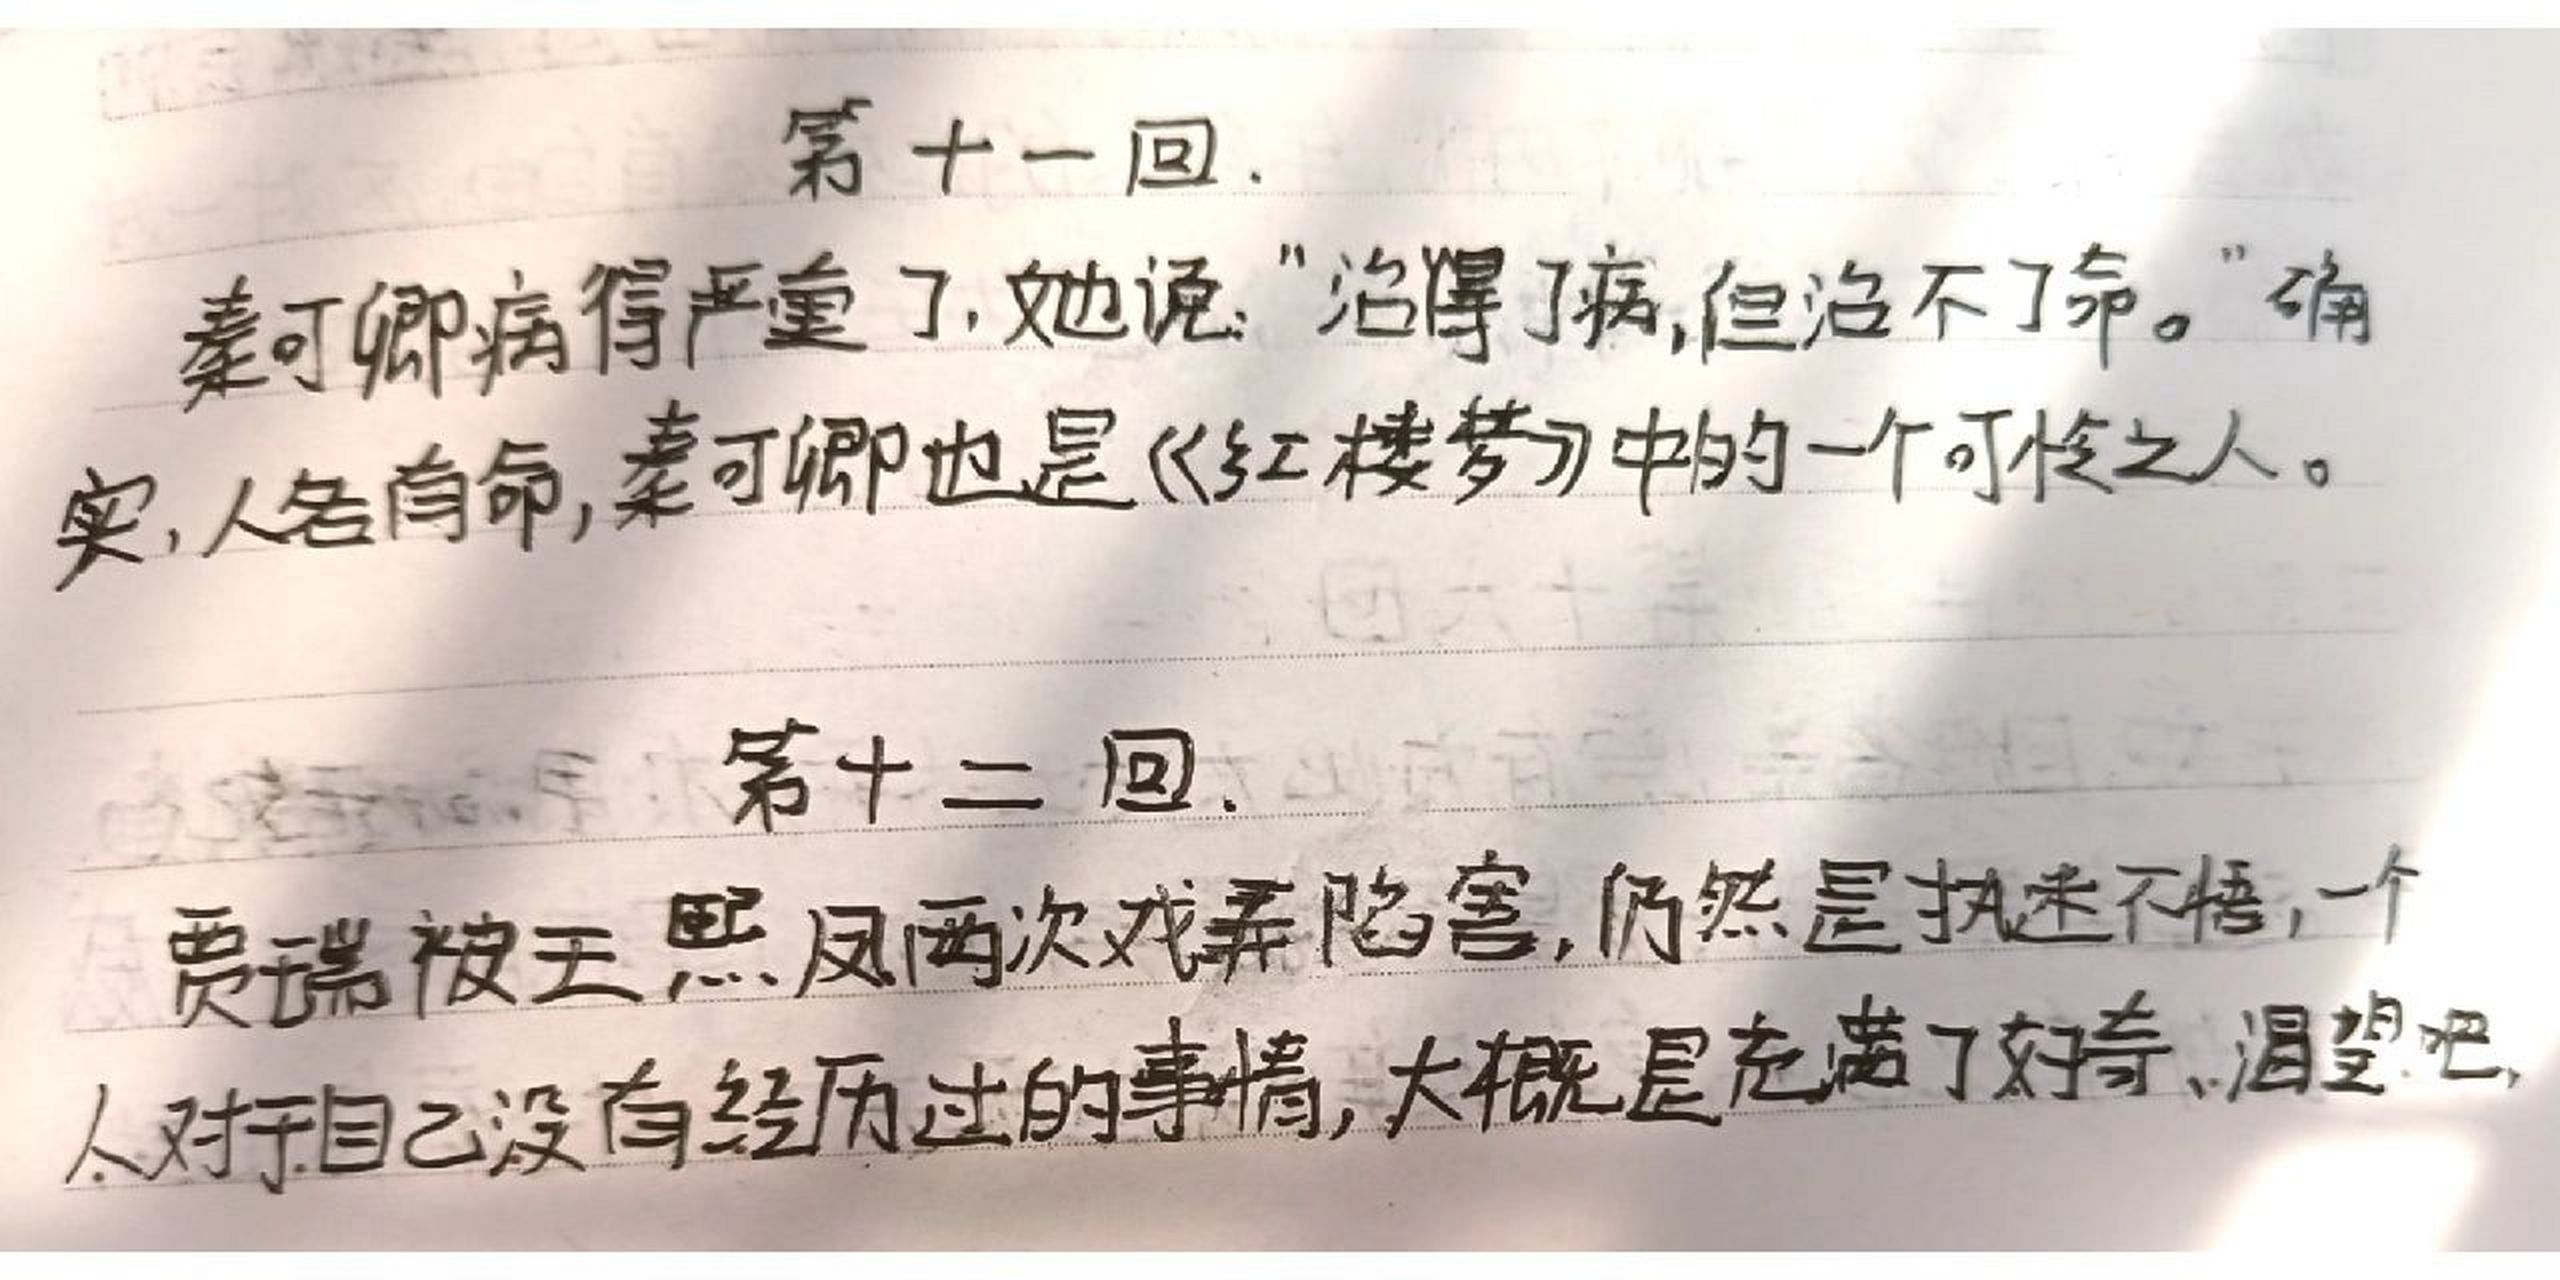 第十一回.
秦可卿病得严重了,她说:"治得了病,但治不了命。"确
实,人各有命,秦可卿也是《红楼梦》中的一个可怜之人。
第十二回.
贾瑞被王熙凤两次戏弄陷害,仍然是执迷不悟,一个
人对于自己没有经历过的事情,大概是充满了好奇、渴望吧,